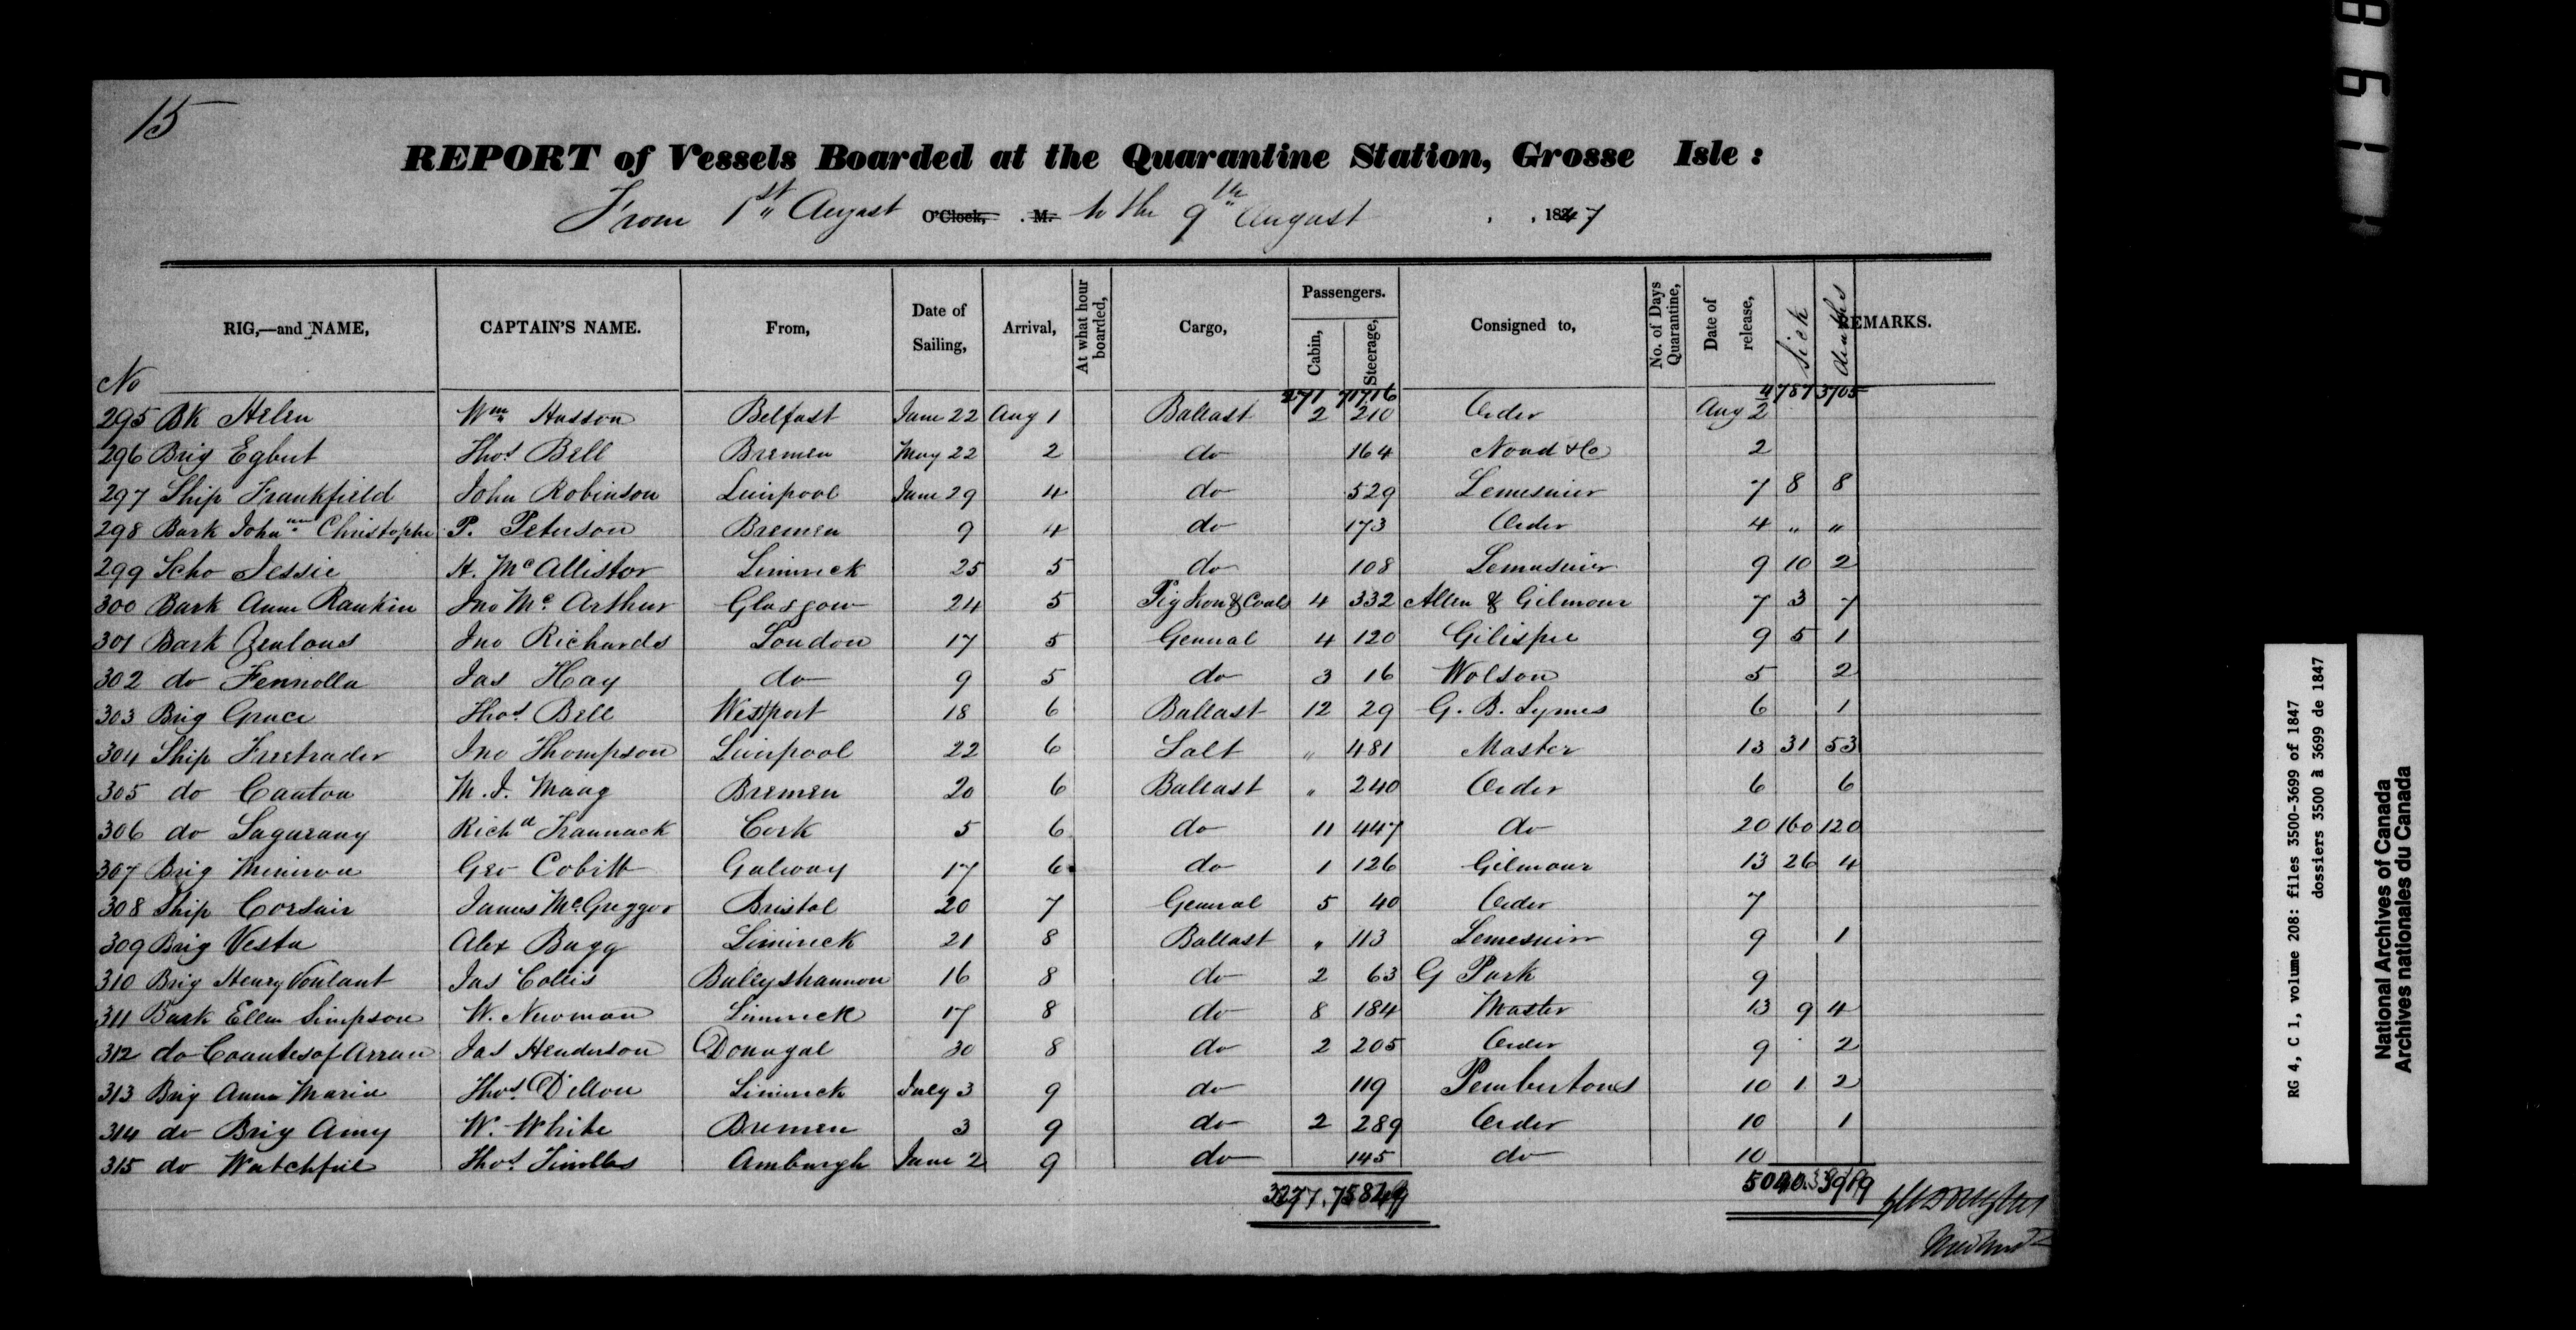 15
REPORT of Vessels Boarded at the Quarantine Station, Grosse Isle :
From 1st August O'Clock, . M. to the 9th August , , 1847
RIG,—and NAME, CAPTAIN'S NAME. From, Date of Sailing, Arrival, At what hour boarded, Cargo, Passengers. Cabin, Steerage, Consigned to, No. of Days Quarantine, Date of release, Sick Deaths REMARKS.
No
271 71716 4787 3705
295 Bk Helen Wm Hasson Belfast June 22 Aug 1 Ballast 2 210 Order Aug 2
296 Brig Egbert Thos Bell Bremen May 22 2 do 164 Noad & Co 2
297 Ship Frankfield John Robinson Liverpool June 29 4 do 529 Lemesurier 7 8 8
298 Bark Johann Christophe P. Peterson Bremen 9 4 do 173 Order 4 " "
299 Scho Jessie H. McAllistor Limerick 25 5 do 108 Lemesurier 9 10 2
300 Bark Ann Rankin Jno Mc Arthur Glasgow 24 5 Pig Iron & Coals 4 332 Allen & Gilmour 7 3 7
301 Bark Zealous Jno Richards London 17 5 General 4 120 Gilispie 9 5 1
302 do Fennolla Jas Hay do 9 5 do 3 16 Wolson 5 2
303 Brig Grace Thos Bell Westport 18 6 Ballast 12 29 G. B. Symes 6 1
304 Ship Freetrader Jno Thompson Liverpool 22 6 Salt " 481 Master 13 31 53
305 do Canton M. J. Maag Bremen 20 6 Ballast " 240 Order 6 6
306 do Sagarany Richd Trannack Cork 5 6 do 11 447 do 20 160 120
307 Brig Minirva Geo Cobitt Galway 17 6 do 1 126 Gilmour 13 26 4
308 Ship Corsair James McGreggor Bristol 20 7 General 5 40 Order 7
309 Brig Vesta Alex Bagg Limerick 21 8 Ballast " 113 Lemesurier 9 1
310 Brig Henry Voulant Jas Collis Ballyshannon 16 8 do 2 63 G Park 9
311 Bark Ellen Simpson W. Newman Limerick 17 8 do 8 184 Master 13 9 4
312 do Countes of Arran Jas Henderson Donagal 30 8 do 2 205 Order 9 2
313 Brig Anna Maria Thos Dillon Limerick July 3 9 do 119 Pembertons 10 1 2
314 do Brig Amy W. White Bremen 3 9 do 2 289 Order 10 1
315 do Watchful Thos Amburgh June 2 9 do 145 do 10
RG 4, C 1, volume 208: files 3500-3699 of 1847
dossiers 3500 à 3699 de 1847
National Archives of Canada
Archives nationales du Canada